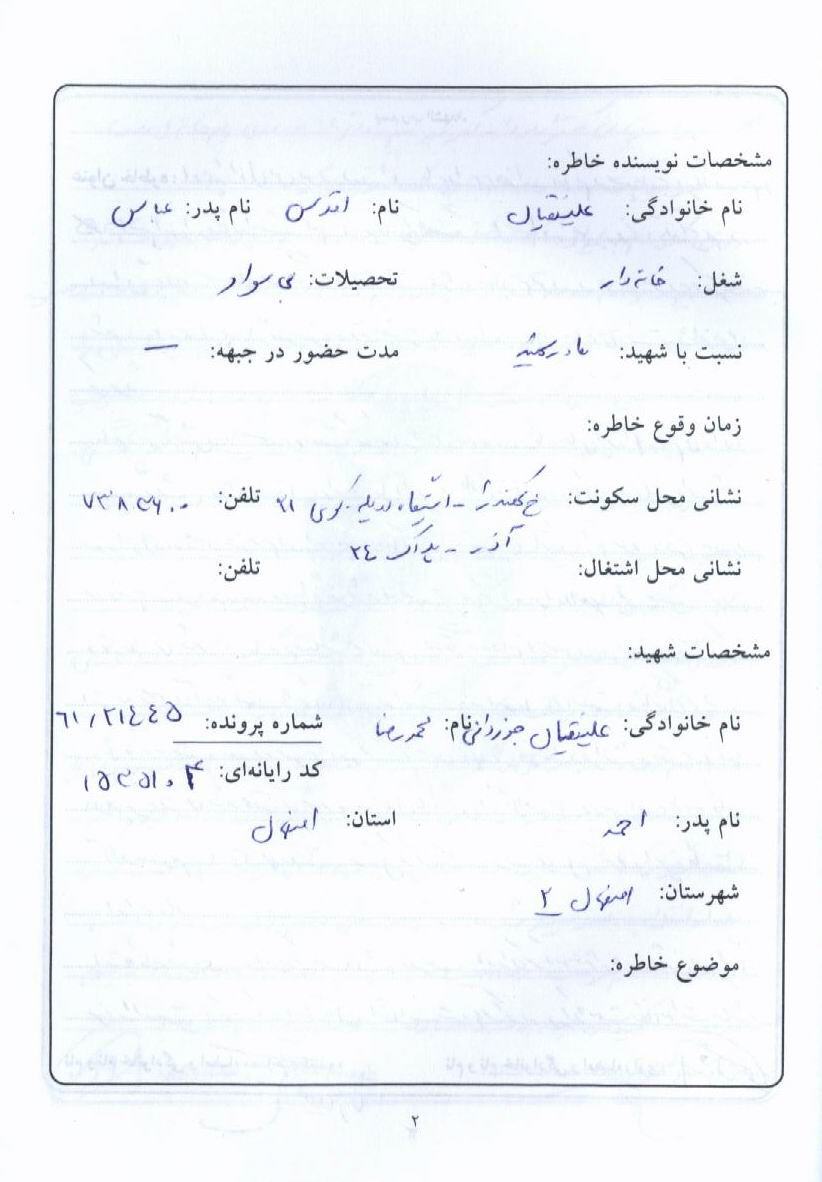 مشخصات نویسنده خاطره:
نام خانوادگی: علینقیان نام: اقدس نام پدر: عباس
شغل: خانه دار تحصیلات: بی سواد
نسبت با شهید: مادر شهید مدت حضور در جبهه: —
زمان وقوع خاطره:
نشانی محل سکونت: خ کهندژ - کوی ۲۱ تلفن:
آذر - پلاک ۲۴
نشانی محل اشتغال: تلفن:
مشخصات شهید:
نام خانوادگی: علینقیان جوزدانی نام: محمدرضا شماره پرونده: ۶۱/۲۱۴۴۵
کد رایانه‌ای:
نام پدر: احمد استان: اصفهان
شهرستان: اصفهان ۲
موضوع خاطره:
۲